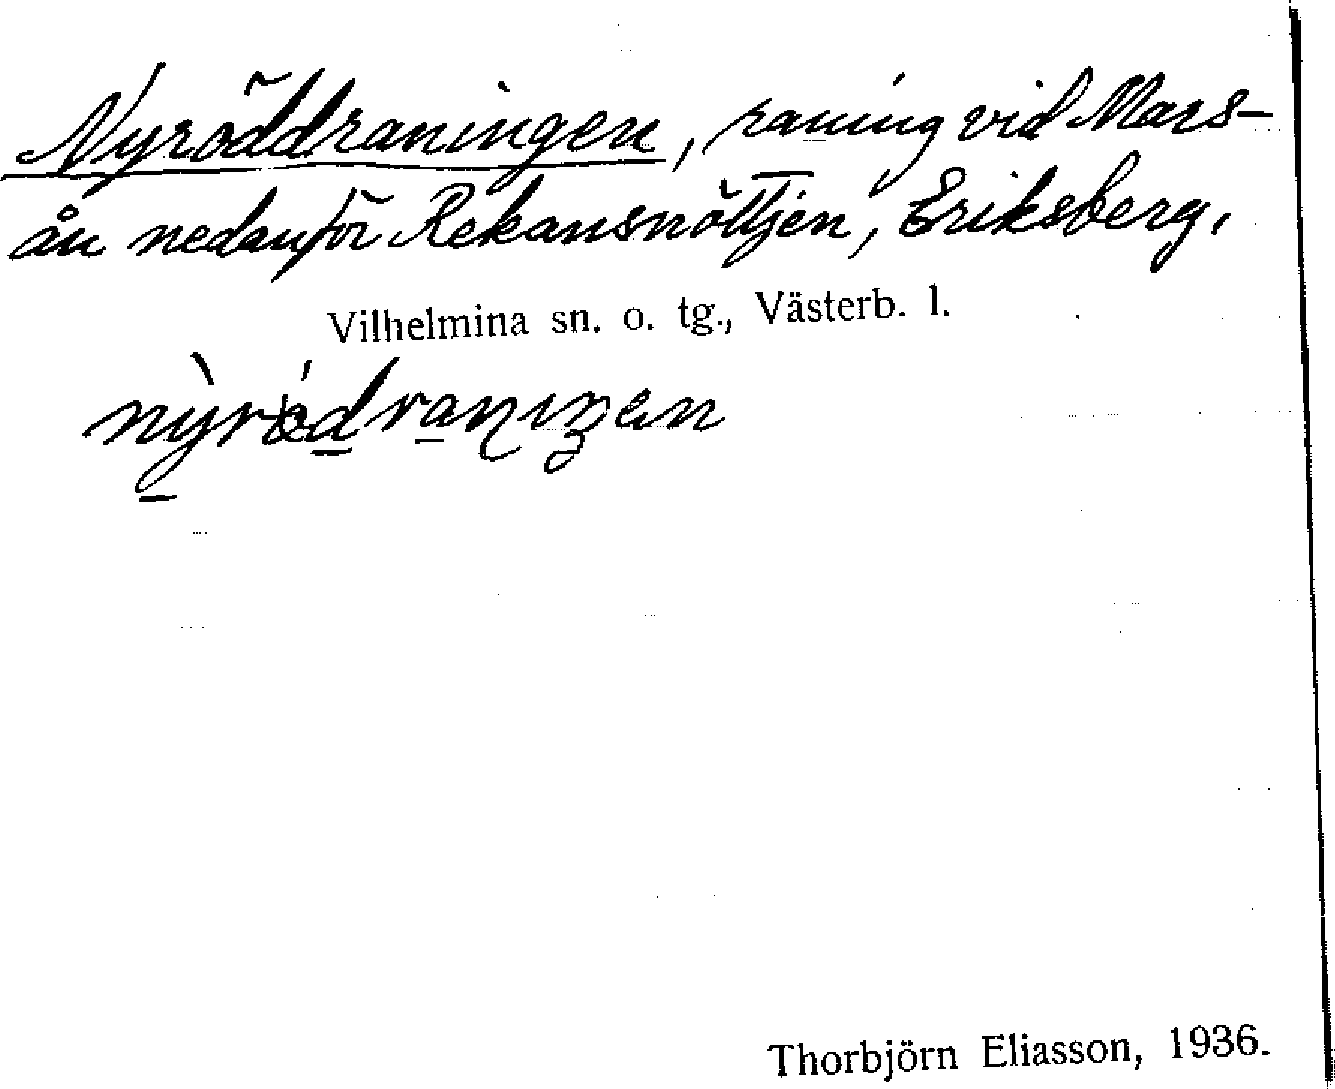 Nyröddraningen, raning vid Mars-
ån nedanför Rekansnöttjen, Eriksberg.
Vilhelmina sn. o. tg., Västerb. l.
Thorbjörn Eliasson, 1936.